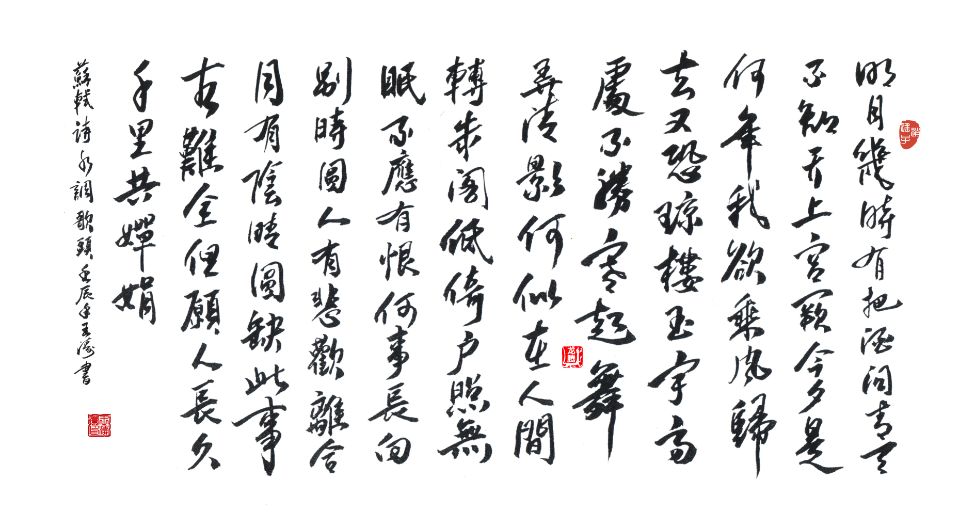 明月幾時有把酒問青天
不知天上宮闕今夕是
何年我欲乘風歸
去又恐琼樓玉宇高
處不勝寒起舞
弄清影何似在人間
轉朱閣低倚戶照無
眠不應有恨何事長向
別時圓人有悲歡離合
月有陰晴圓缺此事
古難全但願人長久
千里共嬋娟
蘇軾詩水調歌頭壬辰年王書